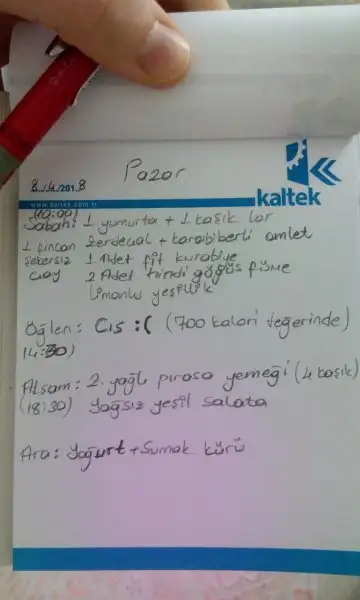 Pazar
8.4.2018
www.kaltek.com.tr
kaltek
(10:00)
Sabah: 1 yumurta + 1 kaşık lor
1 fincan zerdecal + karabiberli omlet
şekersiz 1 Adet fit kurabiye
çay 2 Adet hindi göğüs füme
limonlu yeşillik
Öğlen: Cıs :( (700 kalori değerinde)
14:30)
Akşam: 2. yağlı pırasa yemeği (4 kaşık)
(18:30) Yağsız yeşil salata
Ara: Yoğurt + Sumak kürü